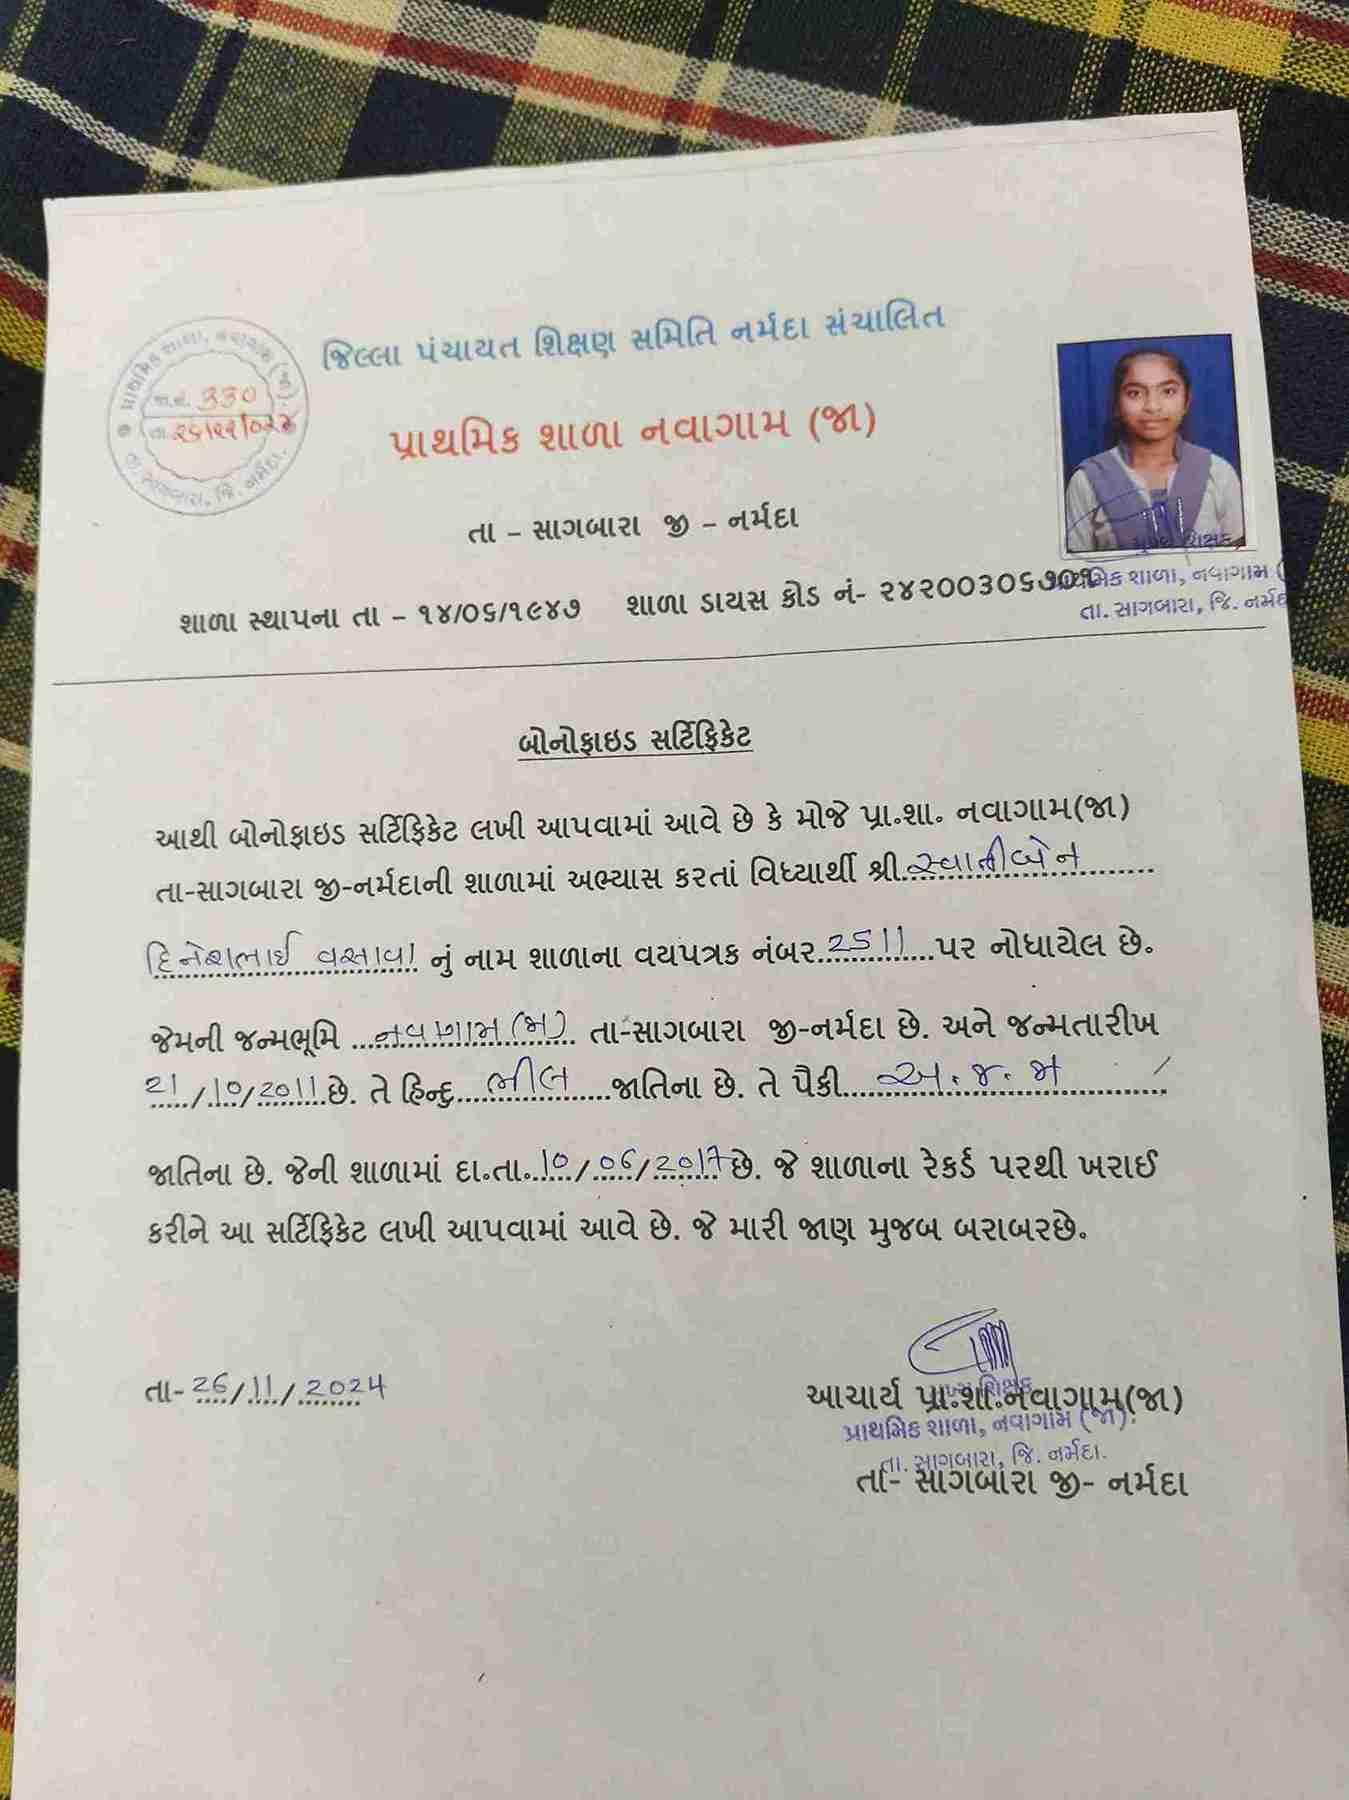 પ્રાથમિક શાળા, નવાગામ (જા).
જા.નં. 330
તા. ૨૬/૧૧/૦૨૪
તા. સાગબારા, જિ. નર્મદા.
જિલ્લા પંચાયત શિક્ષણ સમિતિ નર્મદા સંચાલિત
પ્રાથમિક શાળા નવાગામ (જા)
તા – સાગબારા જી – નર્મદા
મુખ્ય શિક્ષક,
પ્રાથમિક શાળા, નવાગામ (
તા. સાગબારા, જિ. નર્મદ
શાળા સ્થાપના તા – ૧૪/૦૬/૧૯૪૭ શાળા ડાયસ કોડ નં- ૨૪૨૦૦૩૦૬૭૦૧
બોનોફાઇડ સર્ટિફિકેટ
આથી બોનોફાઇડ સર્ટિફિકેટ લખી આપવામાં આવે છે કે મોજે પ્રા.શા. નવાગામ(જા)
તા-સાગબારા જી-નર્મદાની શાળામાં અભ્યાસ કરતાં વિધ્યાર્થી શ્રી. સ્વાતીબેન
દિનેશભાઈ વસાવા નું નામ શાળાના વયપત્રક નંબર 2511 પર નોધાયેલ છે.
જેમની જન્મભૂમિ નવાગામ (જા) તા-સાગબારા જી-નર્મદા છે. અને જન્મતારીખ
21/10/2011 છે. તે હિન્દુ ભીલ જાતિના છે. તે પૈકી અ.જ.જા
જાતિના છે. જેની શાળામાં દા.તા. 10/06/2017 છે. જે શાળાના રેકર્ડ પરથી ખરાઈ
કરીને આ સર્ટિફિકેટ લખી આપવામાં આવે છે. જે મારી જાણ મુજબ બરાબરછે.
તા- 26/11/2024
આચાર્ય પ્રા.શા.નવાગામ(જા)
મુખ્ય શિક્ષક
પ્રાથમિક શાળા, નવાગામ (જા).
તા. સાગબારા, જિ. નર્મદા.
તા- સાગબારા જી- નર્મદા